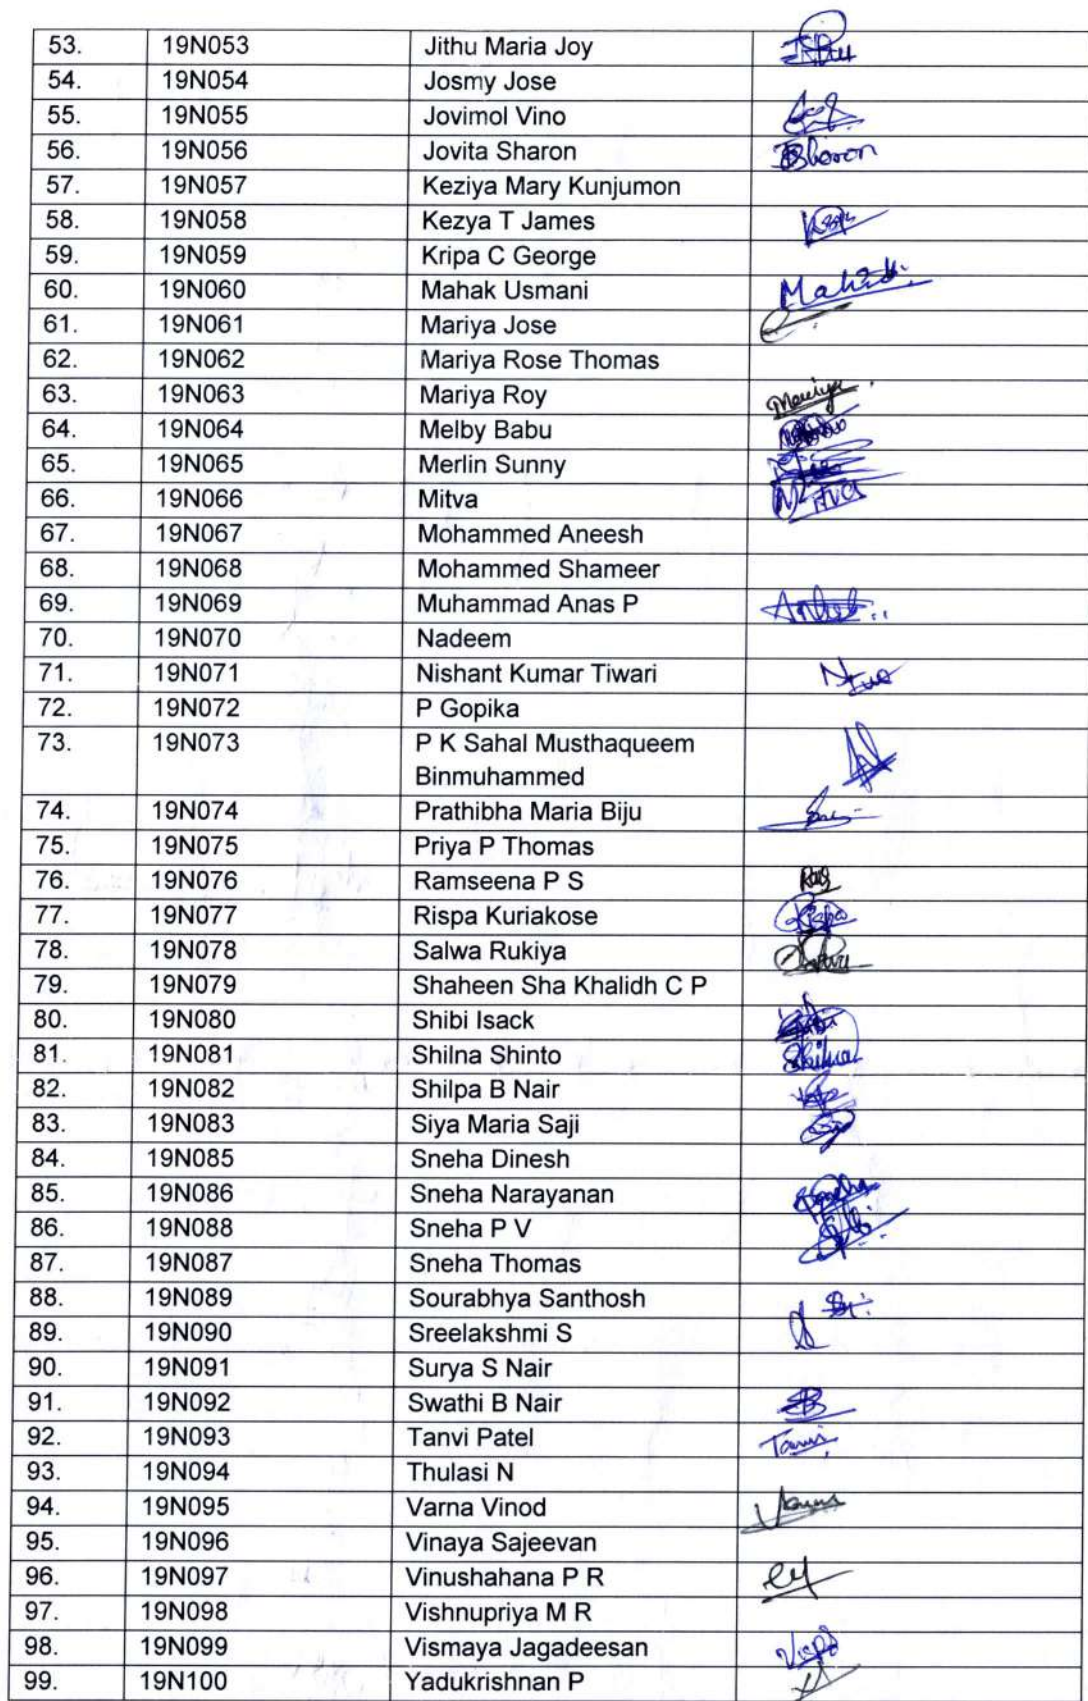 53. 19N053 Jithu Maria Joy
54. 19N054 Josmy Jose
55. 19N055 Jovimol Vino
56. 19N056 Jovita Sharon Sharon
57. 19N057 Keziya Mary Kunjumon
58. 19N058 Kezya T James
59. 19N059 Kripa C George
60. 19N060 Mahak Usmani Mahak
61. 19N061 Mariya Jose
62. 19N062 Mariya Rose Thomas
63. 19N063 Mariya Roy Mariya
64. 19N064 Melby Babu
65. 19N065 Merlin Sunny
66. 19N066 Mitva Mitva
67. 19N067 Mohammed Aneesh
68. 19N068 Mohammed Shameer
69. 19N069 Muhammad Anas P
70. 19N070 Nadeem
71. 19N071 Nishant Kumar Tiwari
72. 19N072 P Gopika
73. 19N073 P K Sahal Musthaqueem
Binmuhammed
74. 19N074 Prathibha Maria Biju
75. 19N075 Priya P Thomas
76. 19N076 Ramseena P S
77. 19N077 Rispa Kuriakose Rispa
78. 19N078 Salwa Rukiya
79. 19N079 Shaheen Sha Khalidh C P
80. 19N080 Shibi Isack
81. 19N081 Shilna Shinto Shilna
82. 19N082 Shilpa B Nair
83. 19N083 Siya Maria Saji
84. 19N085 Sneha Dinesh
85. 19N086 Sneha Narayanan Sneha
86. 19N088 Sneha P V
87. 19N087 Sneha Thomas
88. 19N089 Sourabhya Santhosh
89. 19N090 Sreelakshmi S
90. 19N091 Surya S Nair
91. 19N092 Swathi B Nair
92. 19N093 Tanvi Patel Tanvi
93. 19N094 Thulasi N
94. 19N095 Varna Vinod
95. 19N096 Vinaya Sajeevan
96. 19N097 Vinushahana P R
97. 19N098 Vishnupriya M R
98. 19N099 Vismaya Jagadeesan
99. 19N100 Yadukrishnan P